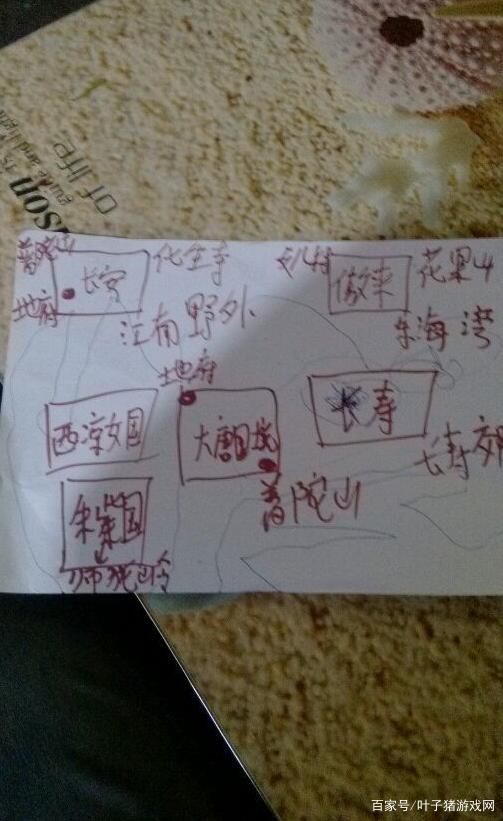 of life
son
普陀山
长安
化生寺
女儿村
傲来
花果山
地府
江南野外
东海湾
地府
西凉女国
大唐国境
长寿
长寿郊
普陀山
朱紫国
狮驼岭
百家号/叶子猪游戏网